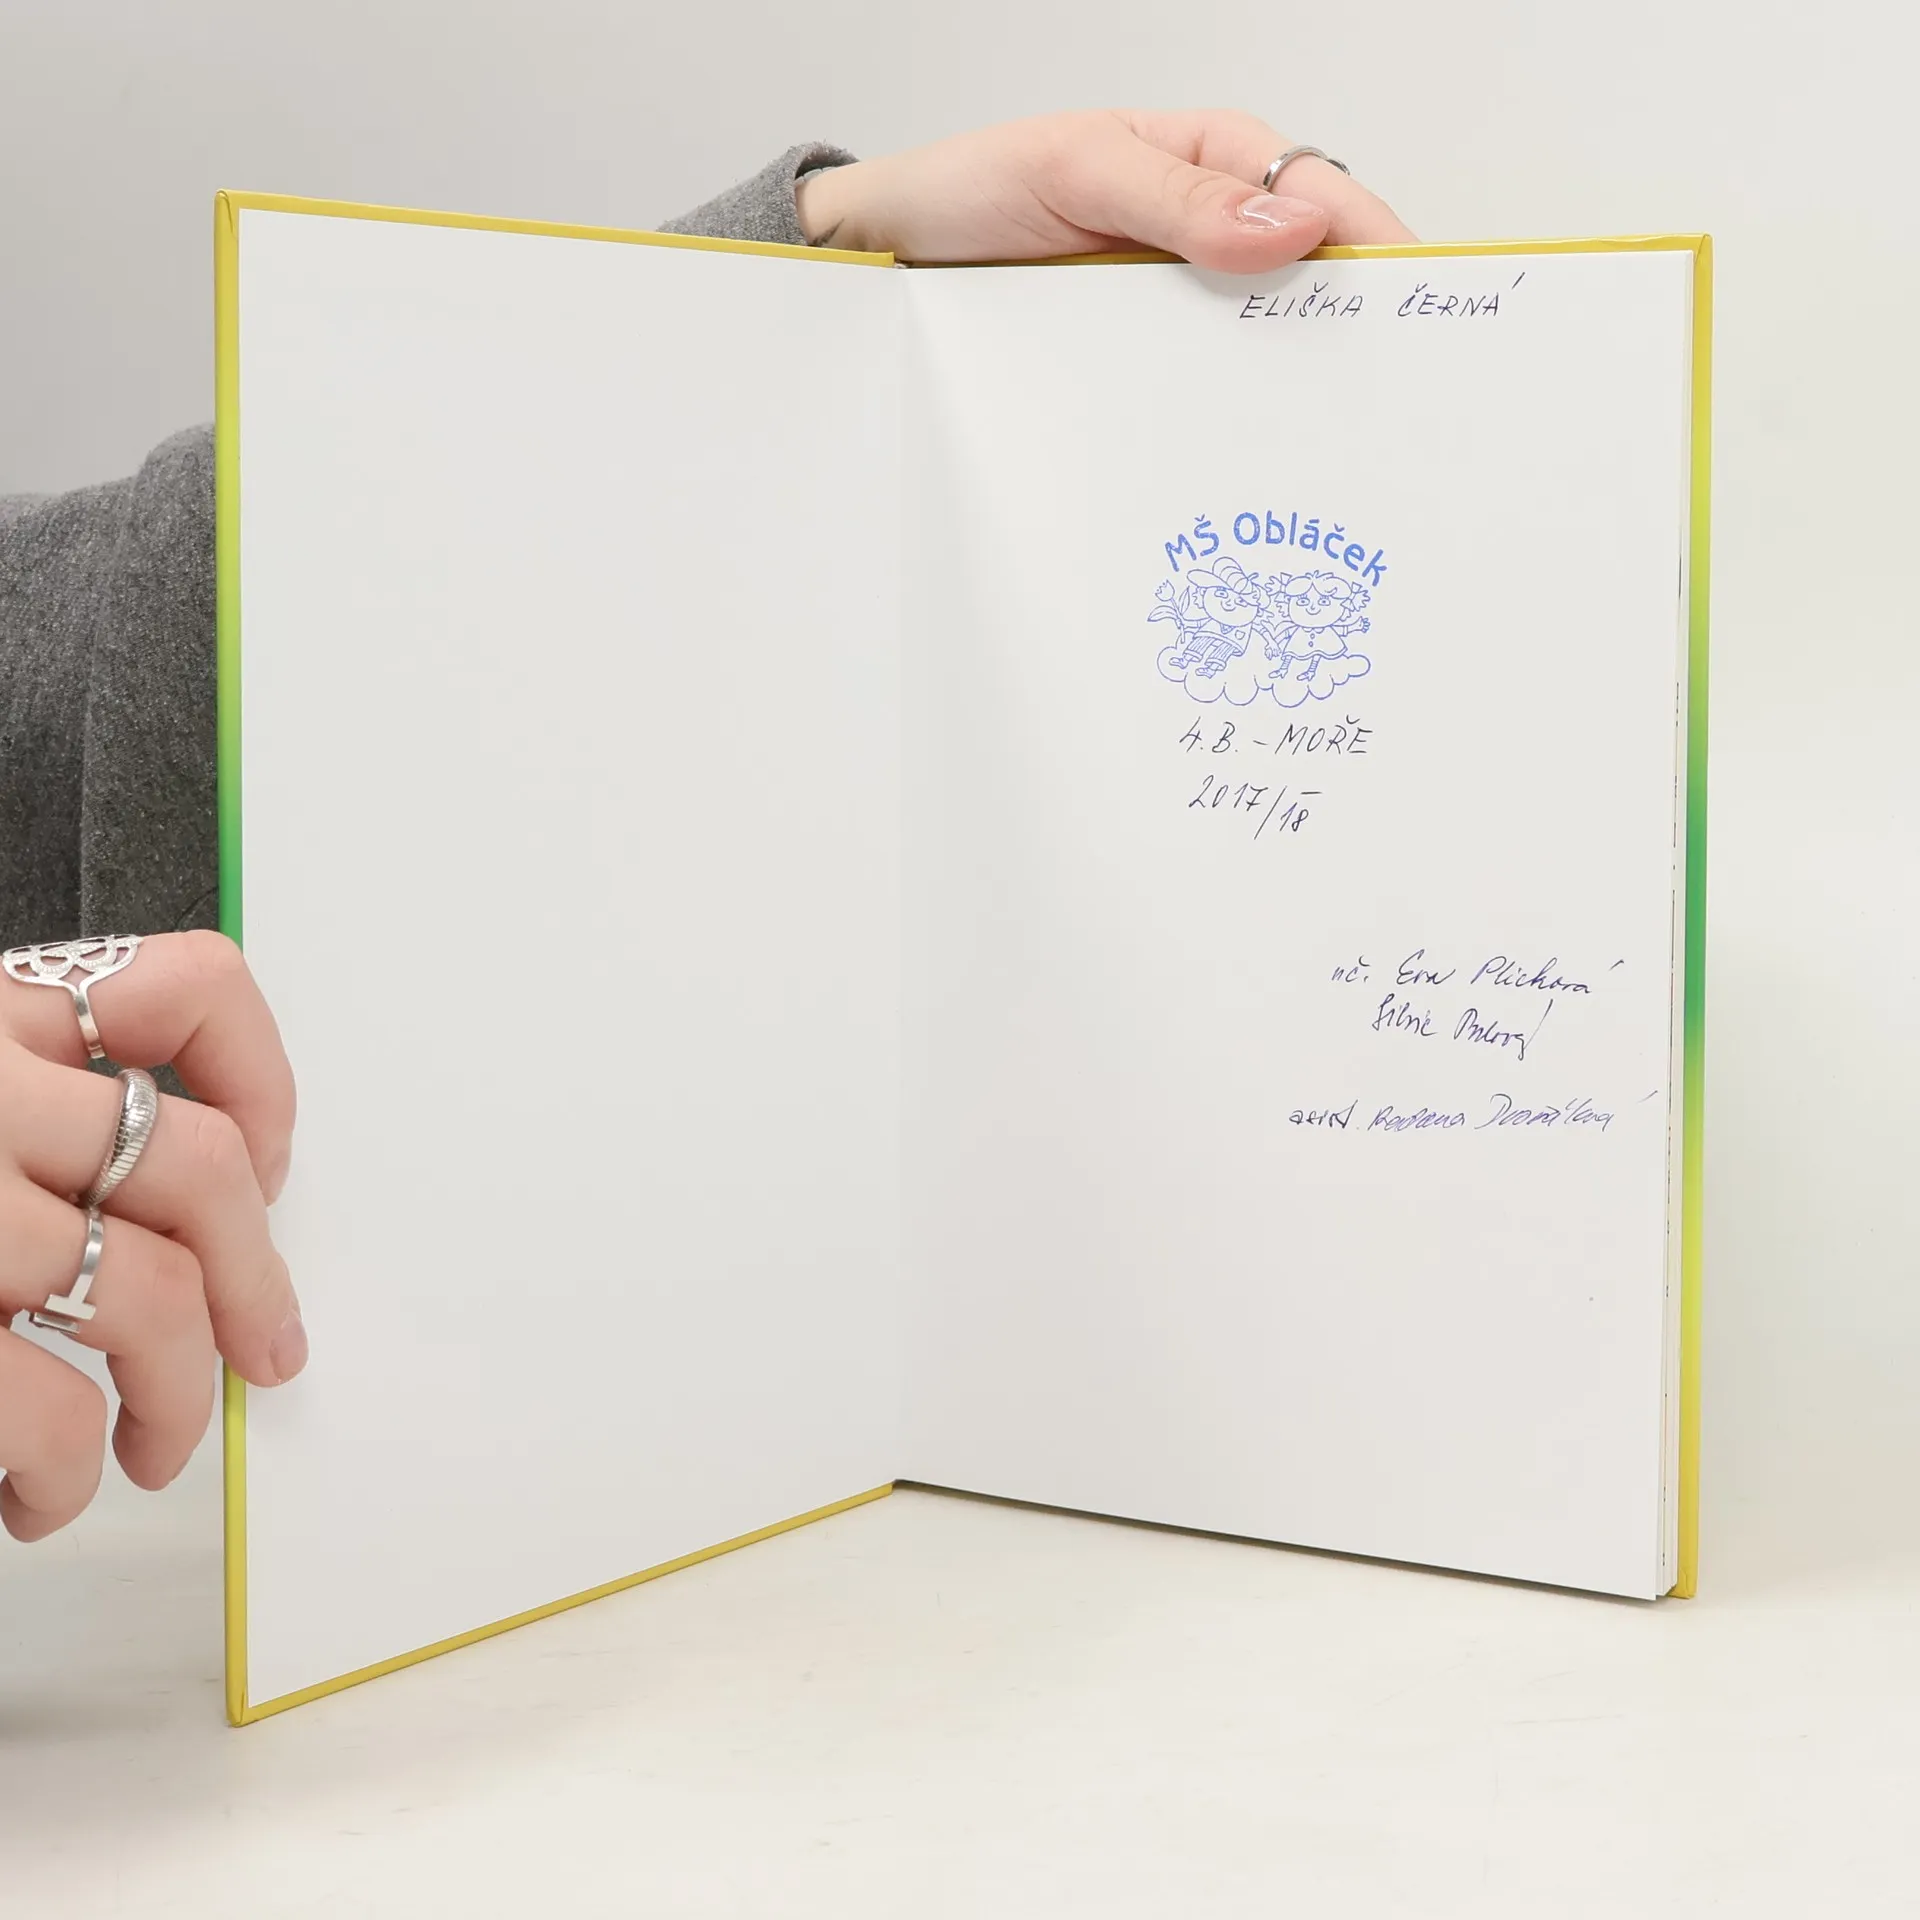 ELIŠKA ČERNÁ
MŠ Obláček
4.B. - MOŘE
2017/18
uč. Eva Plichová
Silvie
asist. Dvořáková